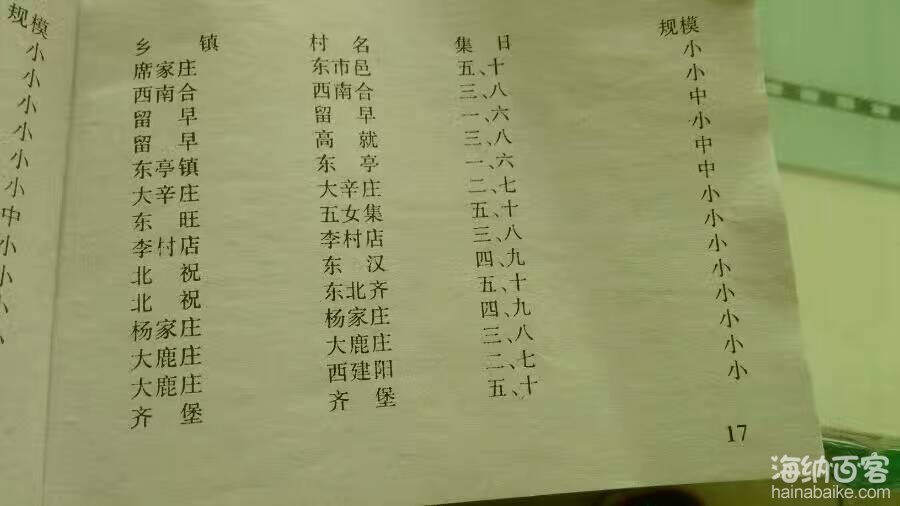 规模
小
小
小
小
小
小
中
小
小
乡镇 村名 集日 规模
席家庄 东市邑 五、十 小
西南合 西南合 三、八 小
留早 留早 一、六 中
留早 高就 三、八 小
东亭镇 东亭 一、六 中
大辛庄 大辛庄 二、七 中
东旺 五女集 五、十 小
李村店 李村店 三、八 小
北祝 东汉 四、九 小
北祝 东北齐 五、十 小
杨家庄 杨家庄 四、九 小
大鹿庄 大鹿庄 三、八 小
大鹿庄 西建阳 二、七 小
齐堡 齐堡 五、十 小
17
海纳百客
hainabaike.com